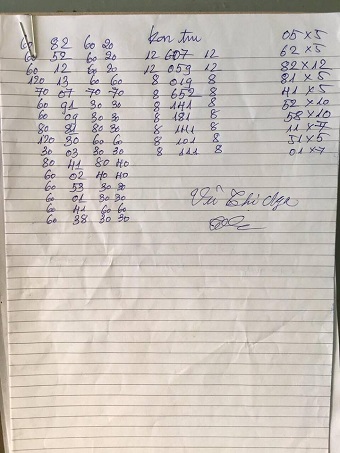 60 82 60 20 Kon tu 05 x 5
60 52 60 20 12 607 12 62 x 5
60 12 60 20 12 059 12 82 x 12
120 13 60 60 8 019 8 81 x 5
70 07 70 70 8 652 8 41 x 5
60 91 30 30 8 141 8 52 x 10
60 09 30 30 8 181 8 58 x 10
80 80 30 8 141 8 11 x 7
120 30 60 60 8 101 8 51 x 5
30 03 30 30 8 111 8 01 x 7
80 41 80 40
60 02 40 40
60 53 30 30
60 01 30 30 Vũ Thị Nga
60 41 60 60
60 38 30 30